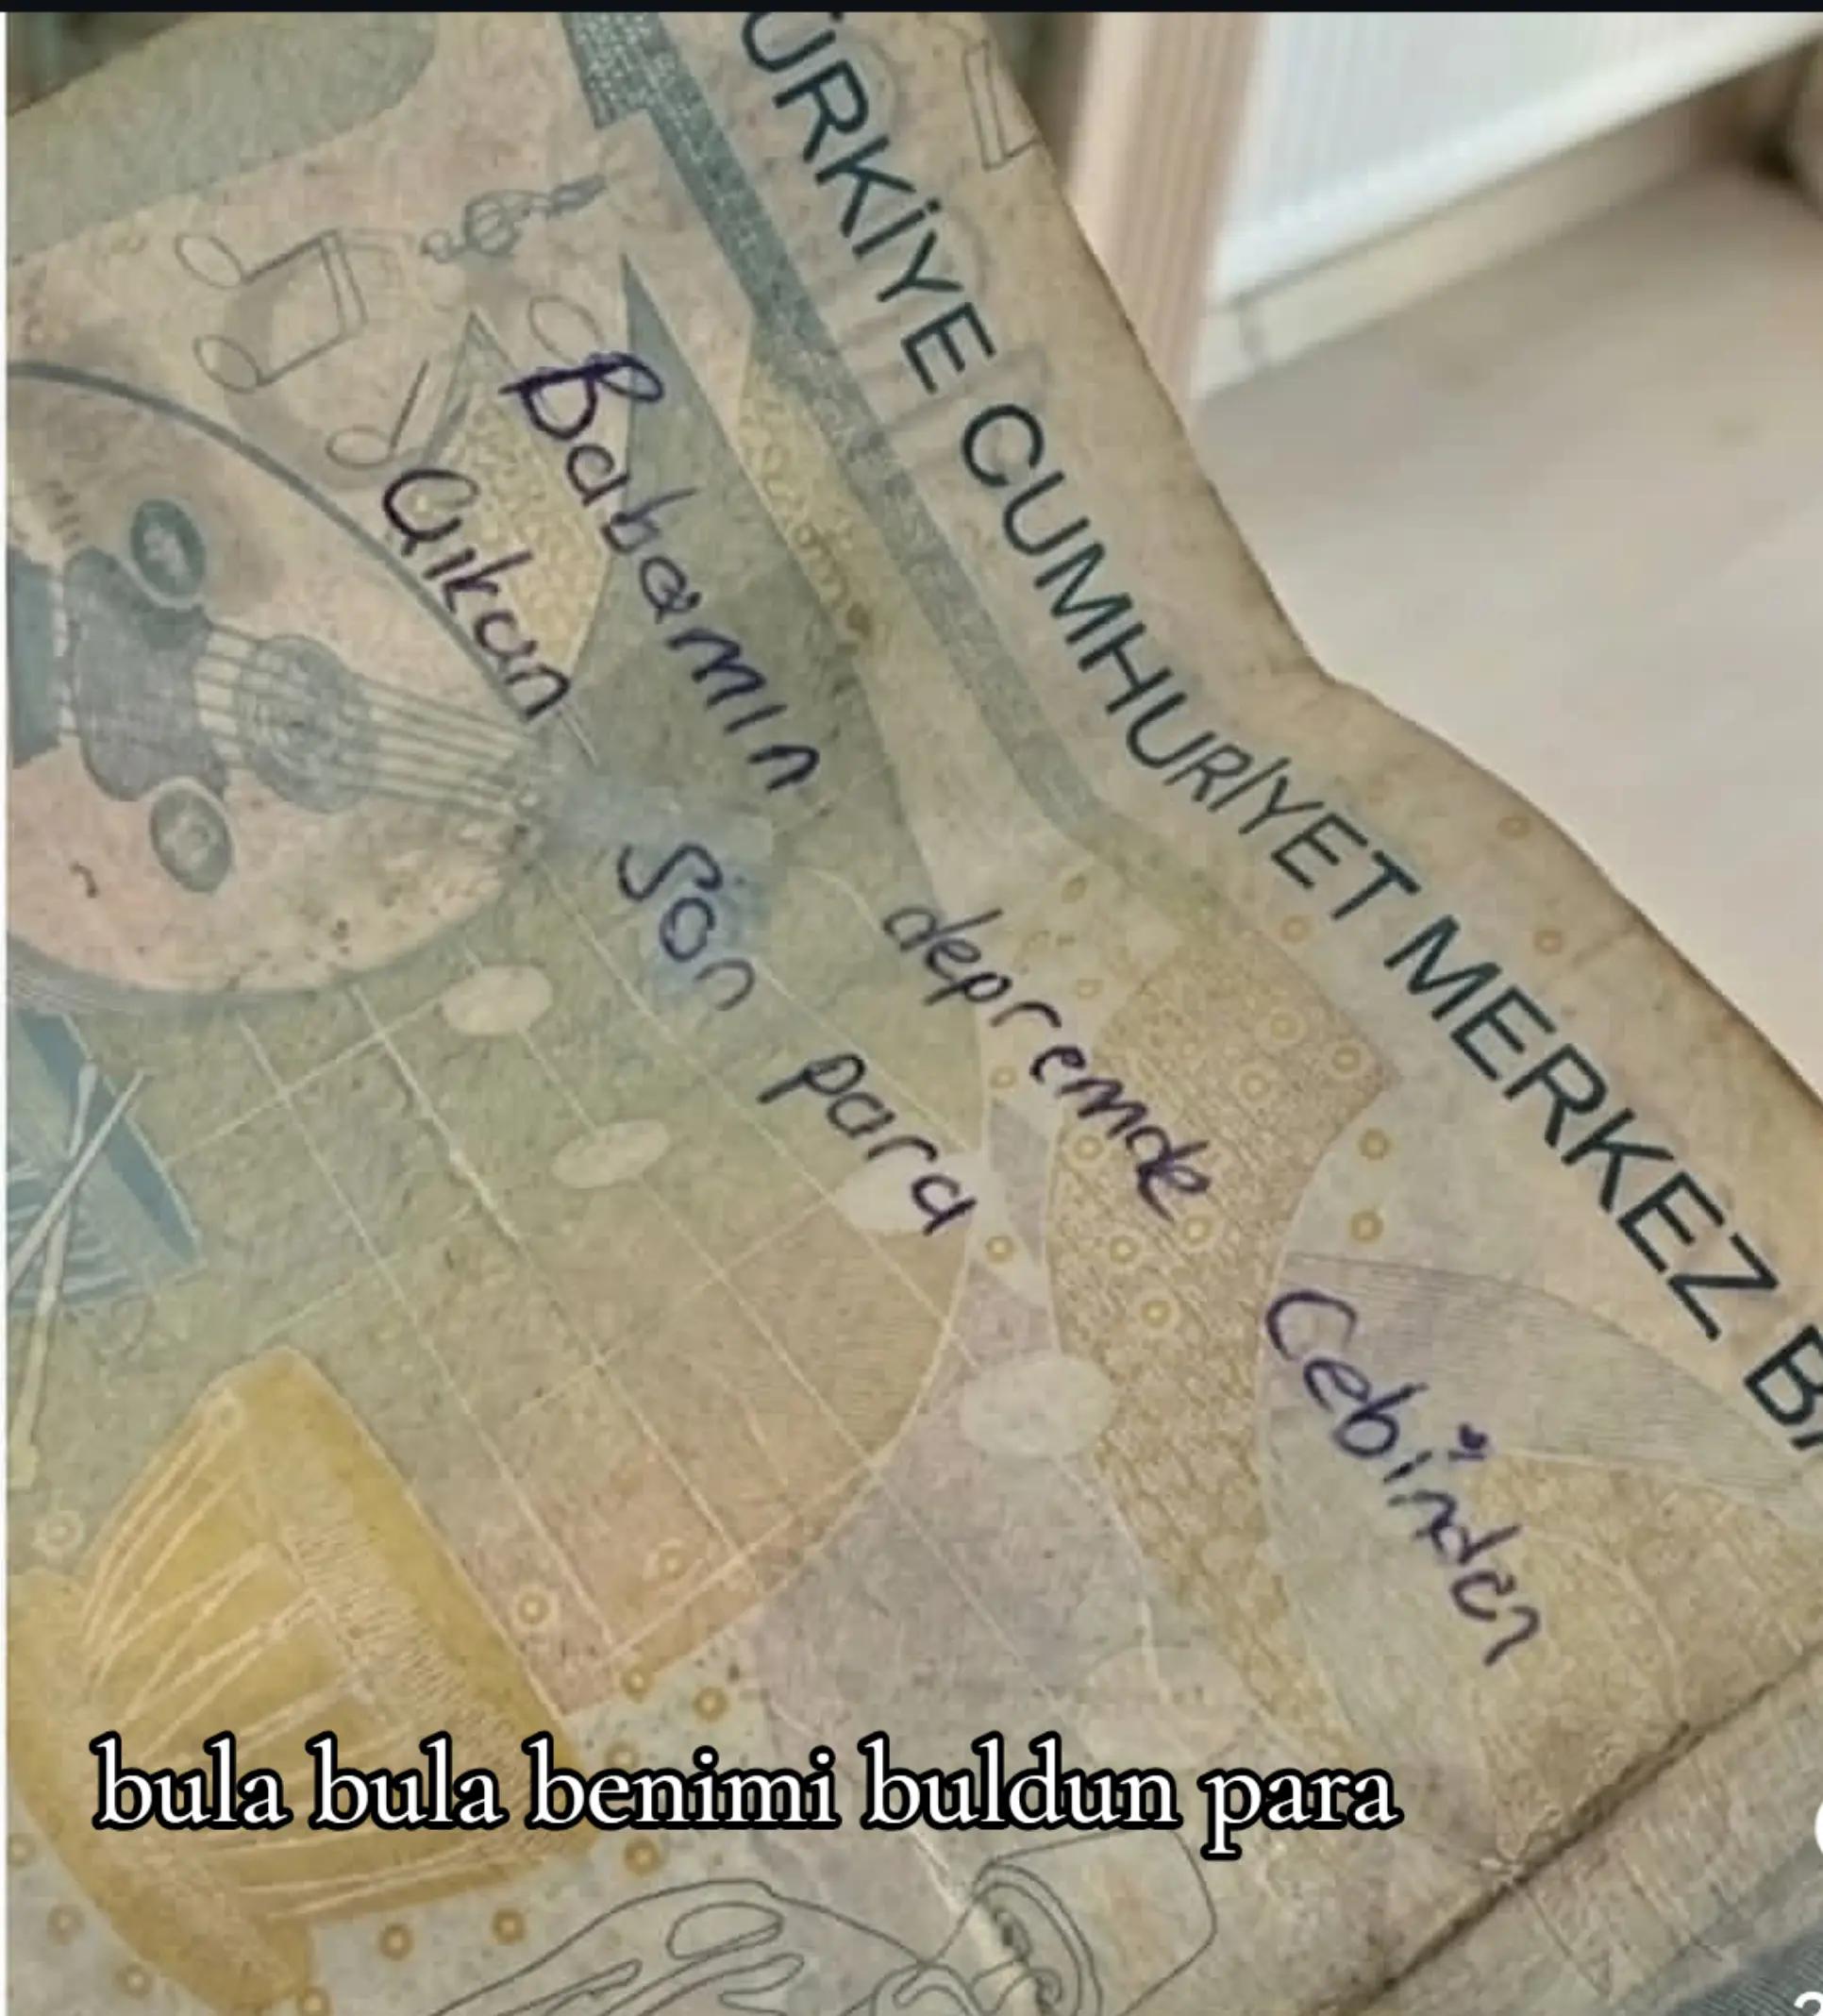 ÜRKİYE CUMHURİYET MERKEZ BA
Babamın depremde Cebinden
Çıkan son para
bula bula benimi buldun para